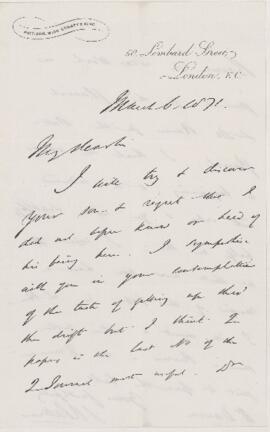 50, Lombard Street,
London, E.C.
March 6. 1871.
My dear
I will try to discover
your son & regret that I
did not before know or hear of
his being here. I sympathise
with you in your contemplation
of the task of getting up
the drift but I think
papers in the last No of the
Journal most useful.